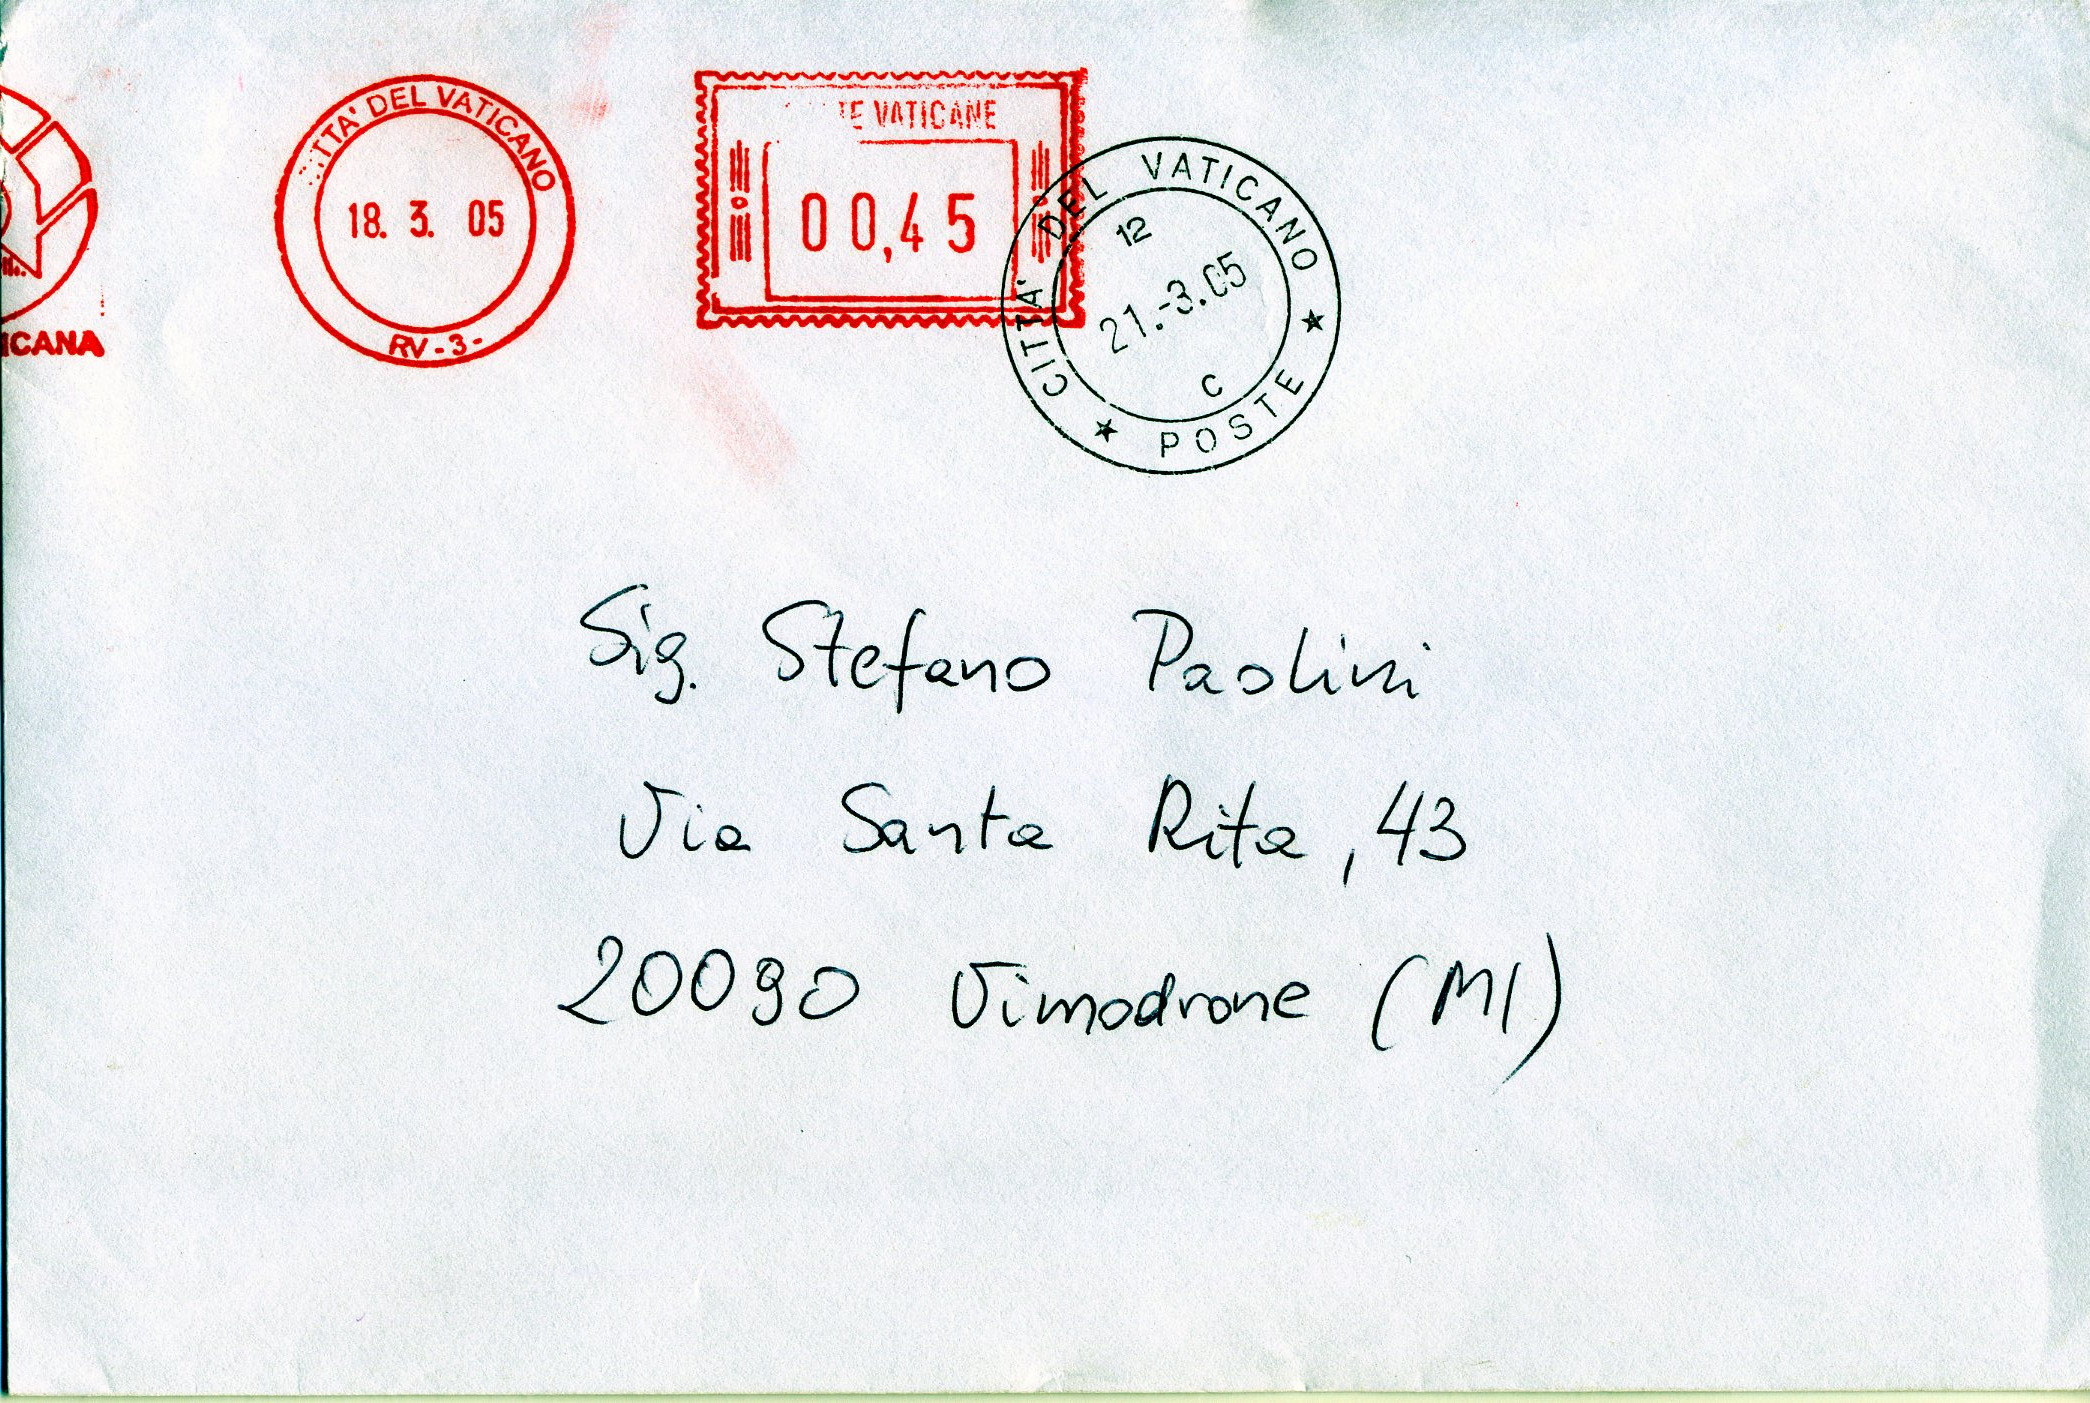 CITTA' DEL VATICANO
18. 3. 05
RV - 3 -
VATICANE
00,45
CITTA' DEL VATICANO
12
21.-3.05
C
★ POSTE ★
Sig. Stefano Paolini
Via Santa Rita, 43
20090 Vimodrone (MI)